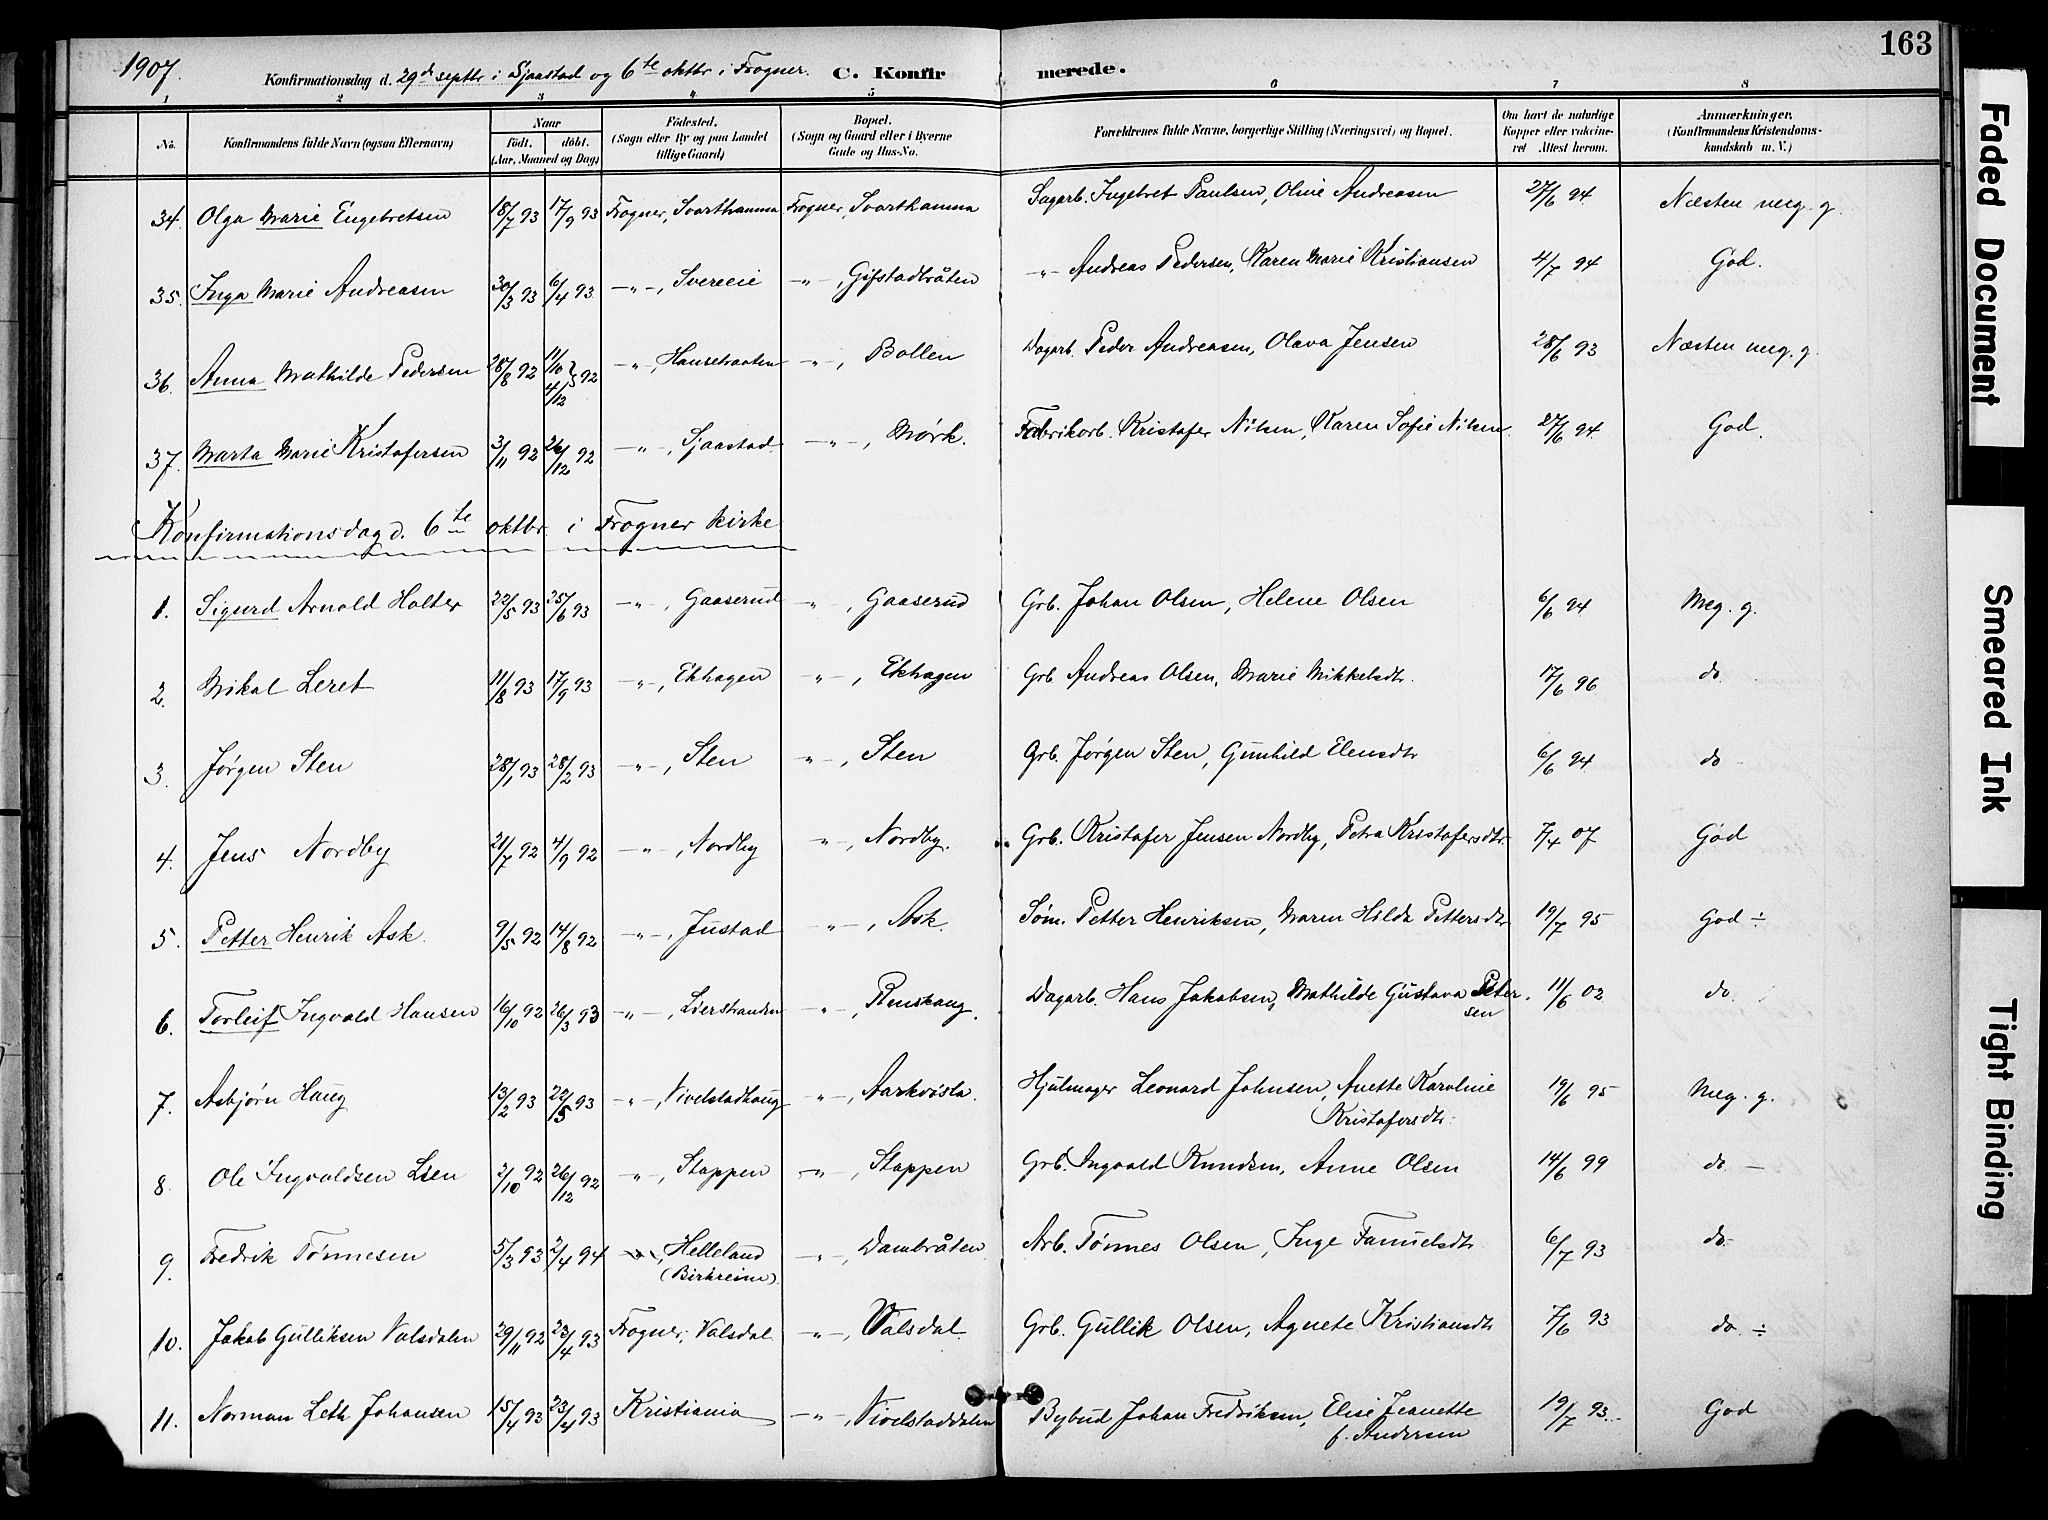 163
1907. Konfirmationsdag d. 29de septbr i Sjaastad og 6te oktbr i Frogner. C. Konfirmerede.
1 2 3 4 5 6 7 8
No. Konfirmandens fulde Navn (ogsaa Efternavn) Naar født. døbt. (Aar, Maaned og Dag) Fødested. (Sogn eller By og paa Landet tillige Gaard) Bopæl. (Sogn og Gaard eller i Byerne Gade og Hus-No. Forældrenes fulde Navne, borgerlige Stilling (Næringsvei) og Bopæl. Om havt de naturlige Kopper eller vakcineret Attest herom. Anmærkninger. (Konfirmandens Kristendomskundskab m. V.)
34. Olga Marie Engebretsen 18/7 93 17/9 93 Frogner, Svarthamma Frogner, Svarthamma Sagarb. Ingebret Paulsen, Oline Andreasen 27/6 94. Næsten meg. g.
35. Inga Marie Andreasen 30/3 93 6/4 93 -"-, Svereeie -"-, Gifstadbråten -"- Andreas Pedersen, Karen Marie Kristiansen 4/7 94 God.
36. Anna Mathilde Pedersen 28/8 92 11/10 4/12 } 92 -"-, Hansebraaten -"-, Bollen Dagarb. Peder Andreasen, Olava Jensen 28/6 93 Næsten meg. g.
37. Marta Marie Kristofersen 3/11 92 26/12 92 -"-, Sjaastad -"-, Mørk. Fabrikarb. Kristofer Nilsen, Karen Sofie Nilsen 27/6 94. God.
Konfirmationsdag d. 6te oktbr. i Frogner kirke
1. Sigurd Arnold Holter 22/5 93 25/6 93 -"-, Gaaserud -"-, Gaaserud Grb. Johan Olsen, Helene Olsen 6/6 94 Meg. g.
2. Mikal Leret 11/8 93 17/9 93 -"-, Ekhagen -"-, Ekhagen Grb Andreas Olsen, Marie Mikkelsdtr. 17/6 96 do
3. Jørgen Sten 28/1 93 28/2 93 -"-, Sten -"-, Sten Grb. Jørgen Sten, Gunhild Elensdtr 6/6 94 do -
4. Jens Nordby 21/7 92 4/9 92 -"-, Nordby -"-, Nordby. Grb. Kristofer Jensen Nordby, Petra Kristofersdtr. 7/4 07 God
5. Petter Henrik Ask. 9/5 92 14/8 92 -"-, Justad -"-, Ask. Søm. Petter Henriksen, Maren Hilda Pettersdtr 19/7 95 God ÷
6. Torleif Ingvald Hansen 16/10 92 26/3 93 -"-, Lierstranden -"-, Renskaug. Dagarb. Hans Jakobsen, Mathilde Gustava Petersen 11/6 02 do.
7. Asbjørn Haug 13/2 93 22/5 93 -"-, Vivelstadhaug -"-, Aarkvisla. Hjulmager Leonard Johnsen, Anette Karoline Kristofersdtr. 19/6 95 Meg. g.
8. Ole Ingvaldsen Lien 2/10 92 26/12 92 -"-, Stoppen -"-, Stoppen Grb. Ingvald Knudsen, Anne Olsen 14/6 99 do -
9. Fredrik Tønnesen 5/3 93 2/4 94 Helleland (Birkreim) -"-, Dambråten Arb. Tønnes Olsen, Inge Fanuelsdtr 6/7 93 do-
10. Jakob Gulliksen Valsdalen 29/11 92 23/4 93 Frogner, Valsdal -"-, Valsdal. Grb. Gullik Olsen, Agnete Kristiansdtr 7/6 93 do ÷
11. Norman Leth Johansen 15/4 93 23/4 93 Kristiania -"-, Vivelstaddalen Bybud Johan Fredriksen, Elise Jeanette f. Andersen 19/7 93. God
Faded Document
Smeared Ink
Tight Binding